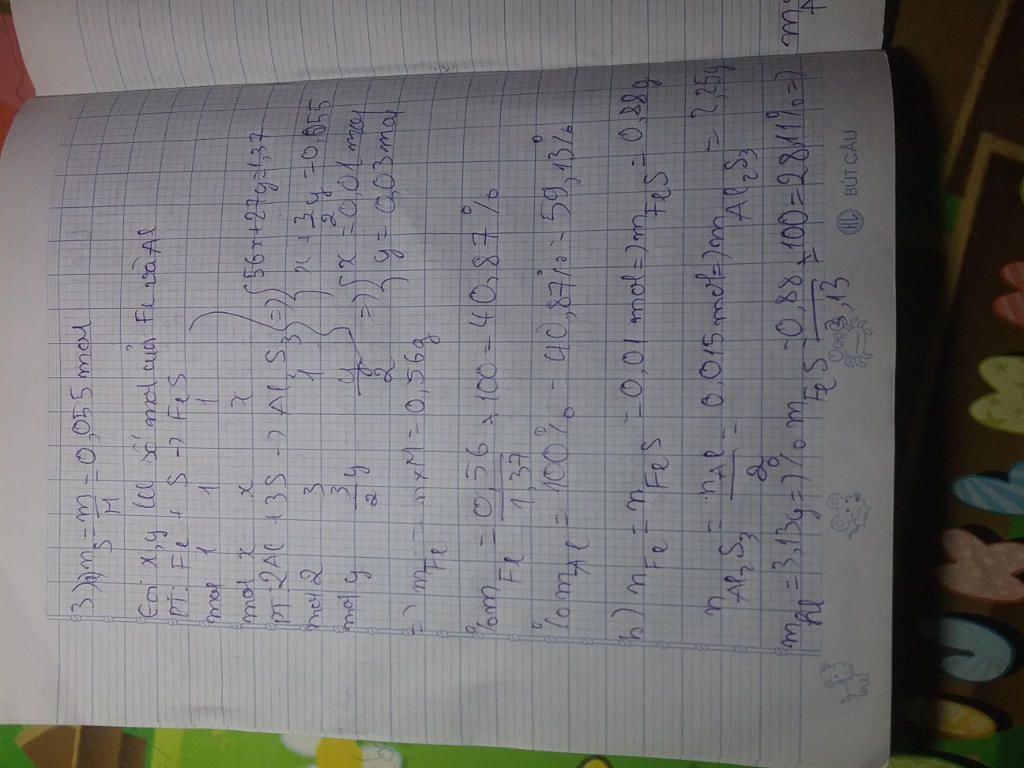 3) a) n_S = m/M = 0,055 mol
Gọi x, y là số mol của Fe và Al
PT: Fe + S -> FeS
mol 1 1 1
mol x x x
PT: 2Al + 3S -> Al2S3 => { 56x + 27y = 1,37
mol 2 3 1 { x + 3/2 y = 0,055
mol y 3/2 y y/2 => { x = 0,01 mol
{ y = 0,03 mol
=> m_Fe = n x M = 0,56g
%m_Fe = 0,56/1,37 x 100 = 40,87%
%m_Al = 100% - 40,87% = 59,13%
b) n_Fe = n_FeS = 0,01 mol => m_FeS = 0,88g
n_Al2S3 = n_Al/2 = 0,015 mol => m_Al2S3 = 2,25g
= 3,13g => %m_FeS = 0,88/3,13 x 100 = 28,11% =>
BÚT CÂU